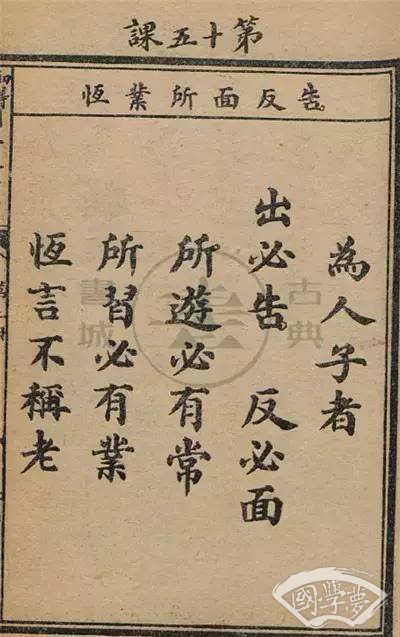 第十五課
告反面所業恆
為人子者
出必告 反必面
所遊必有常
所習必有業
恆言不稱老
古典書城
國學夢